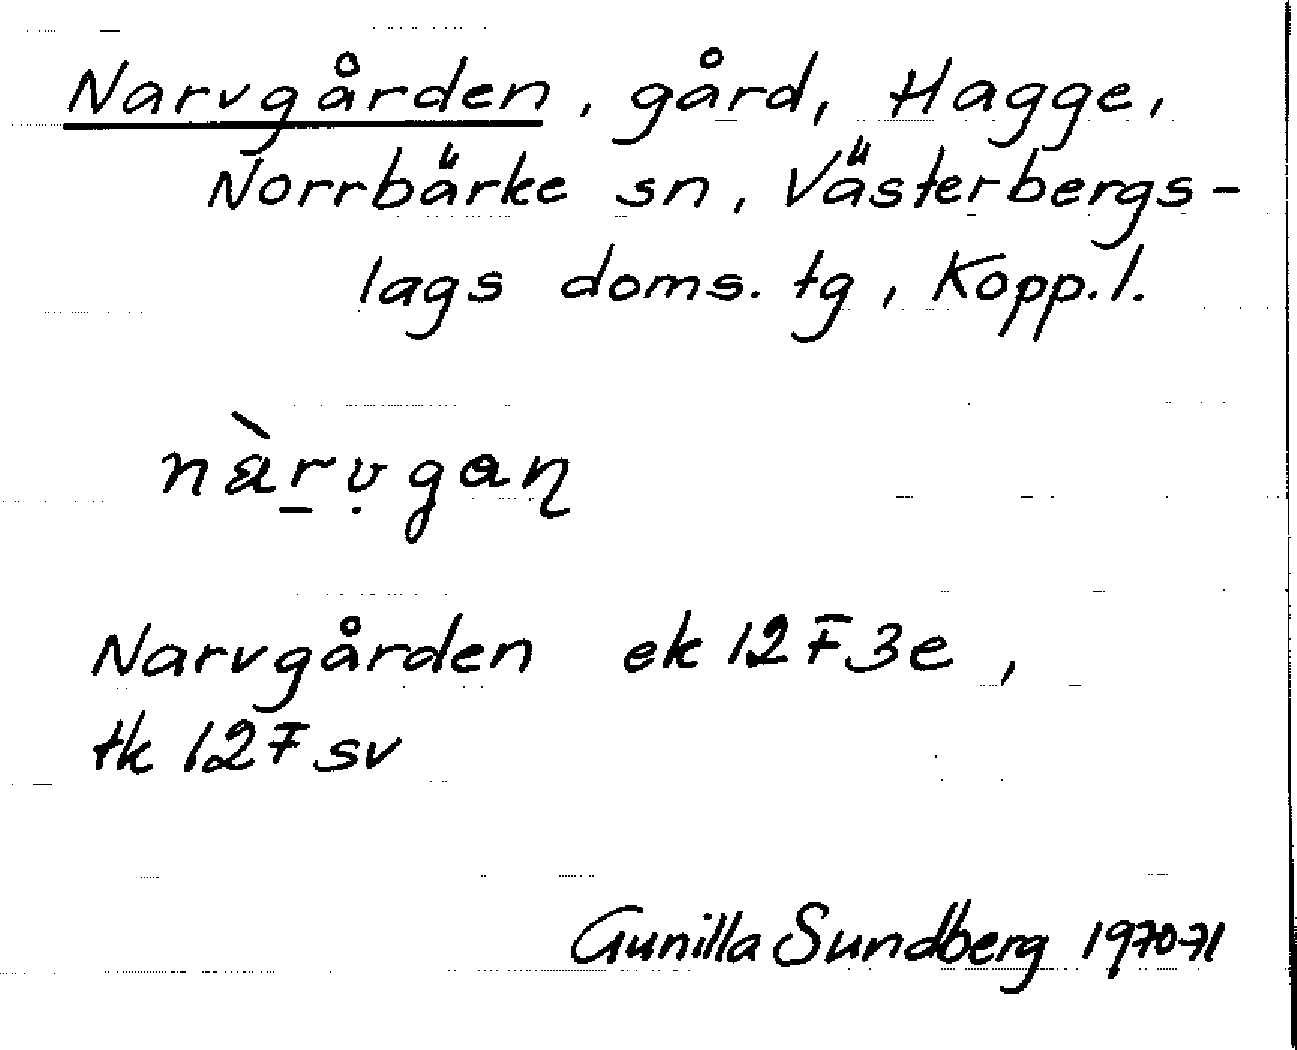 Narvgården, gård, Hagge,
Norrbärke sn, Västerbergs-
lags doms. tg, Kopp.l.
nàr̠ṿgaɳ
Narvgården ek 12F3e,
tk 12F sv
Gunilla Sundberg 1970-71